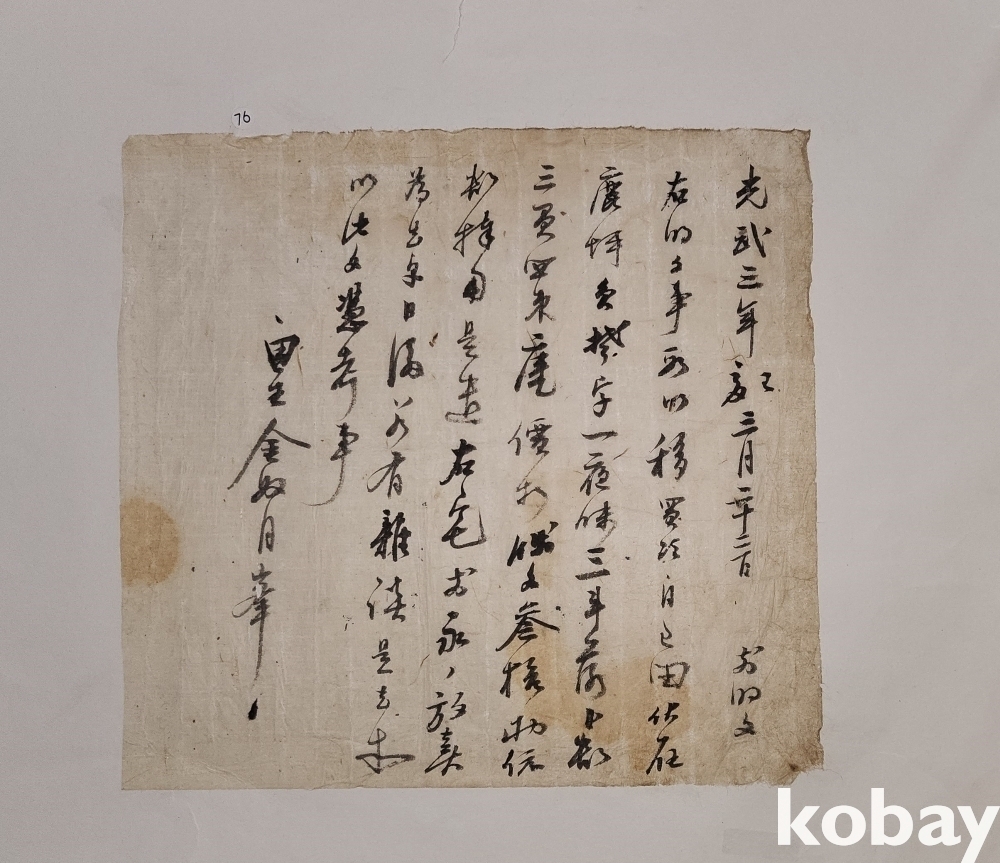 76
光武三年 三月二十二日 前明文
右明文事段以移買次自己田伏在
坪員 字一夜味三斗落卜數
三負四束庫價折錢文參拾兩依
數捧用是遣右宅前永永放賣
為去乎日後若有雜談是去等
以此文憑考事
畓主金奴月
kobay